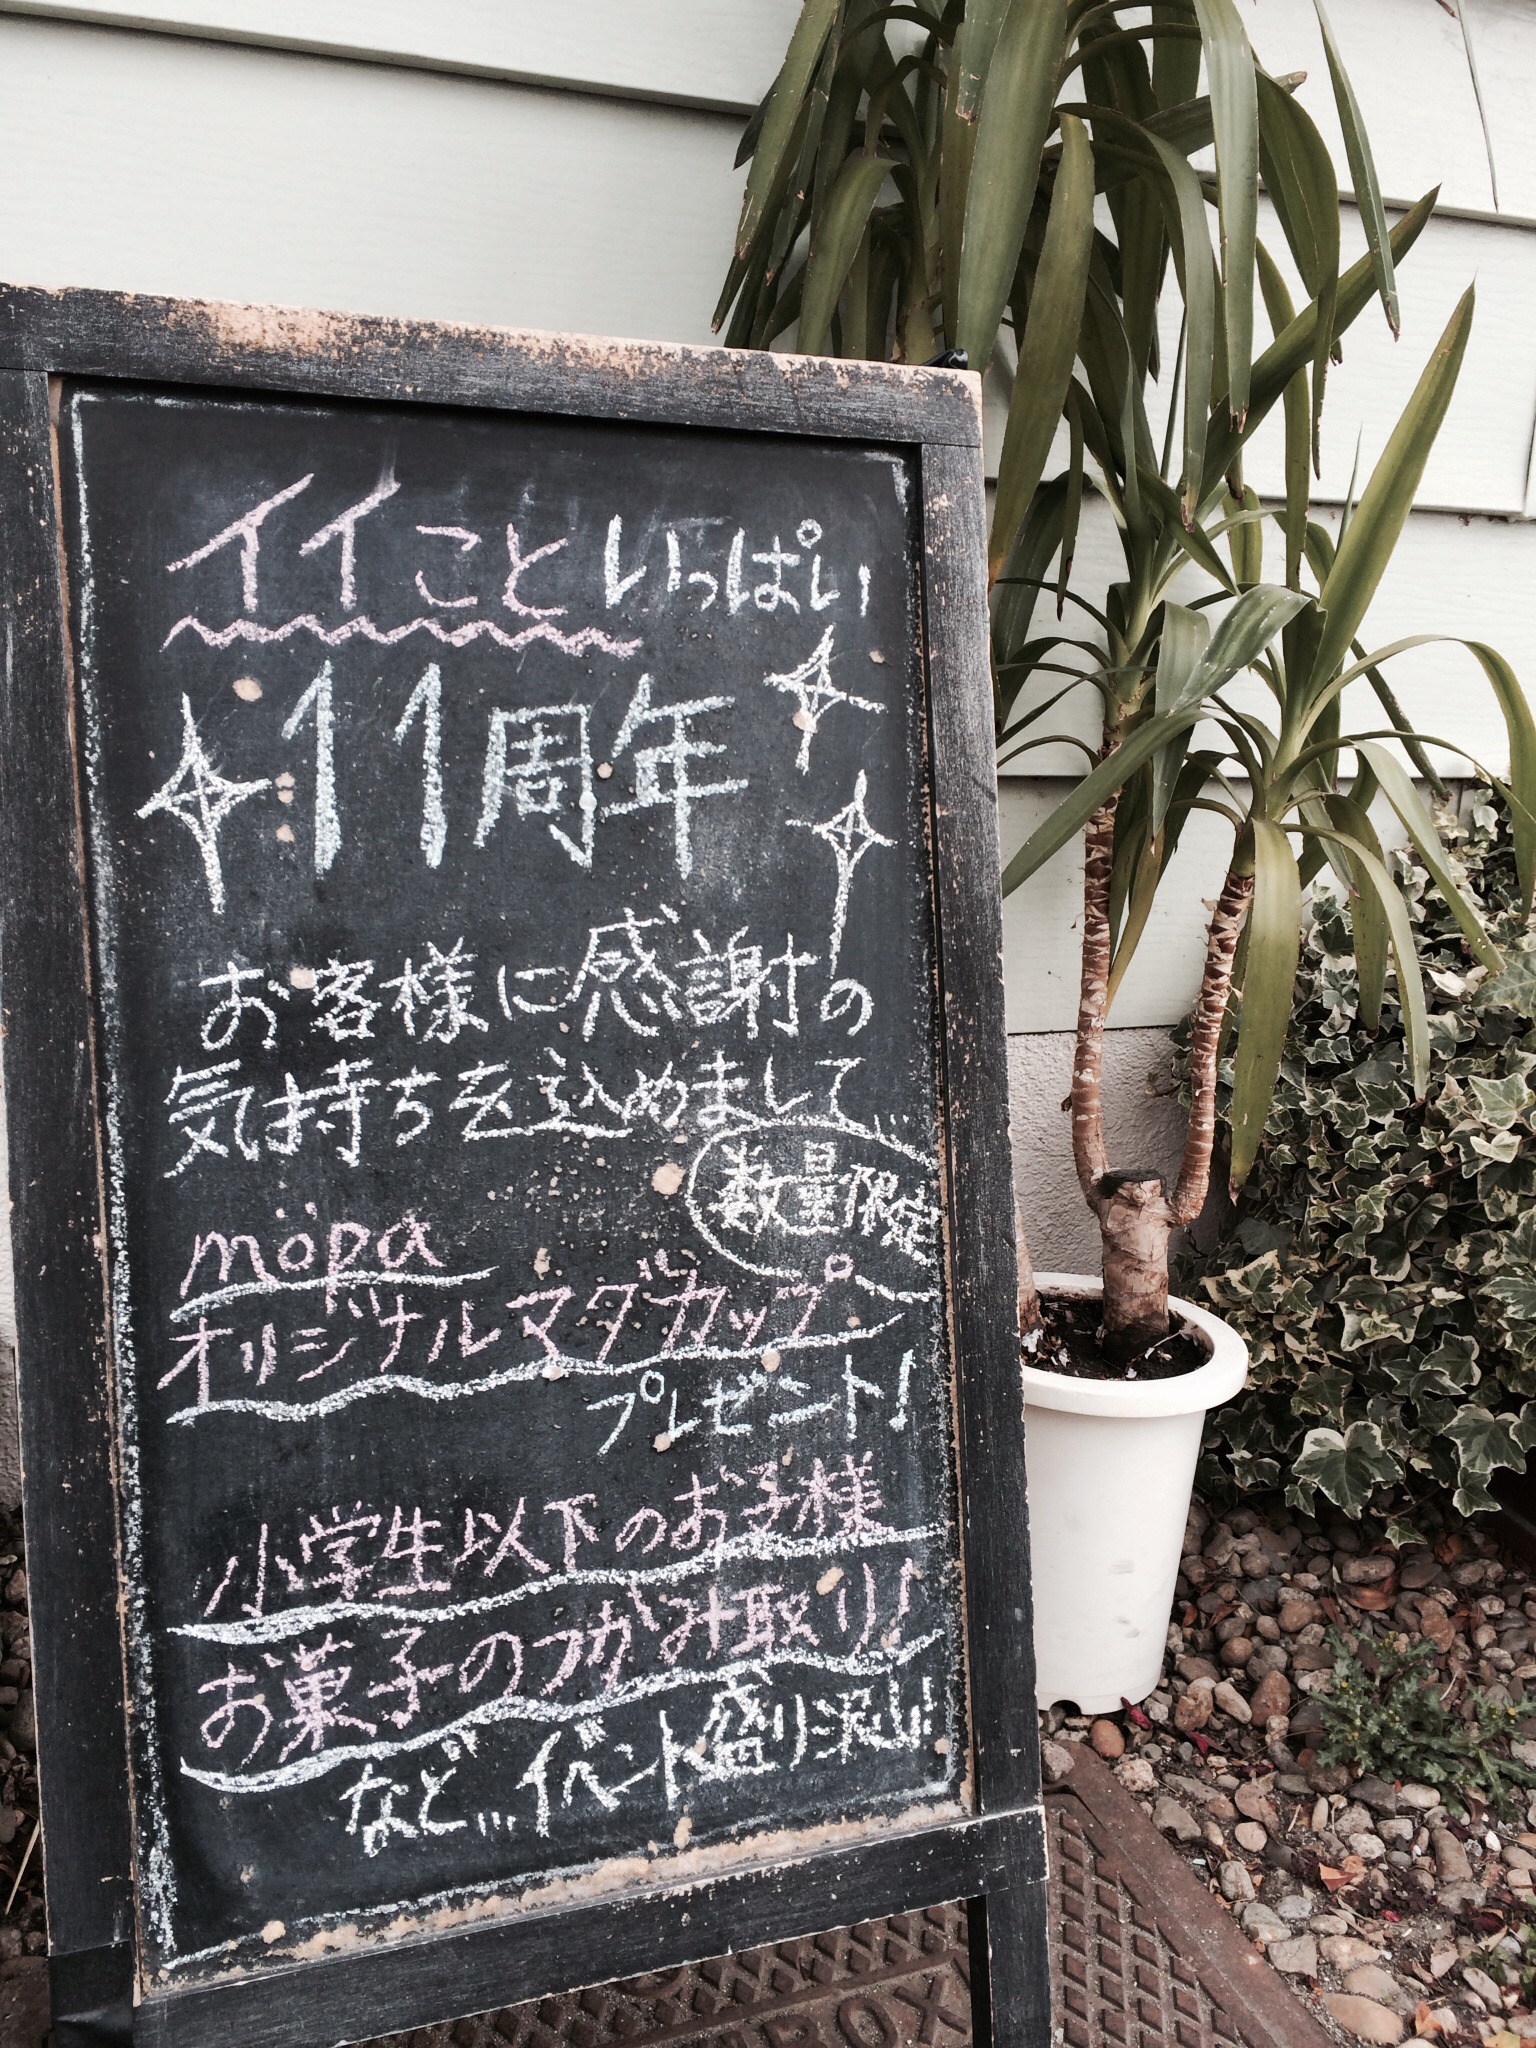 イイこといっぱい
11周年
お客様に感謝の
気持ちを込めまして…
数量限定
möpa
オリジナルマグカップ
プレゼント!
小学生以下のお子様
お菓子のつかみ取り!
など…イベント盛り沢山!!
BOX